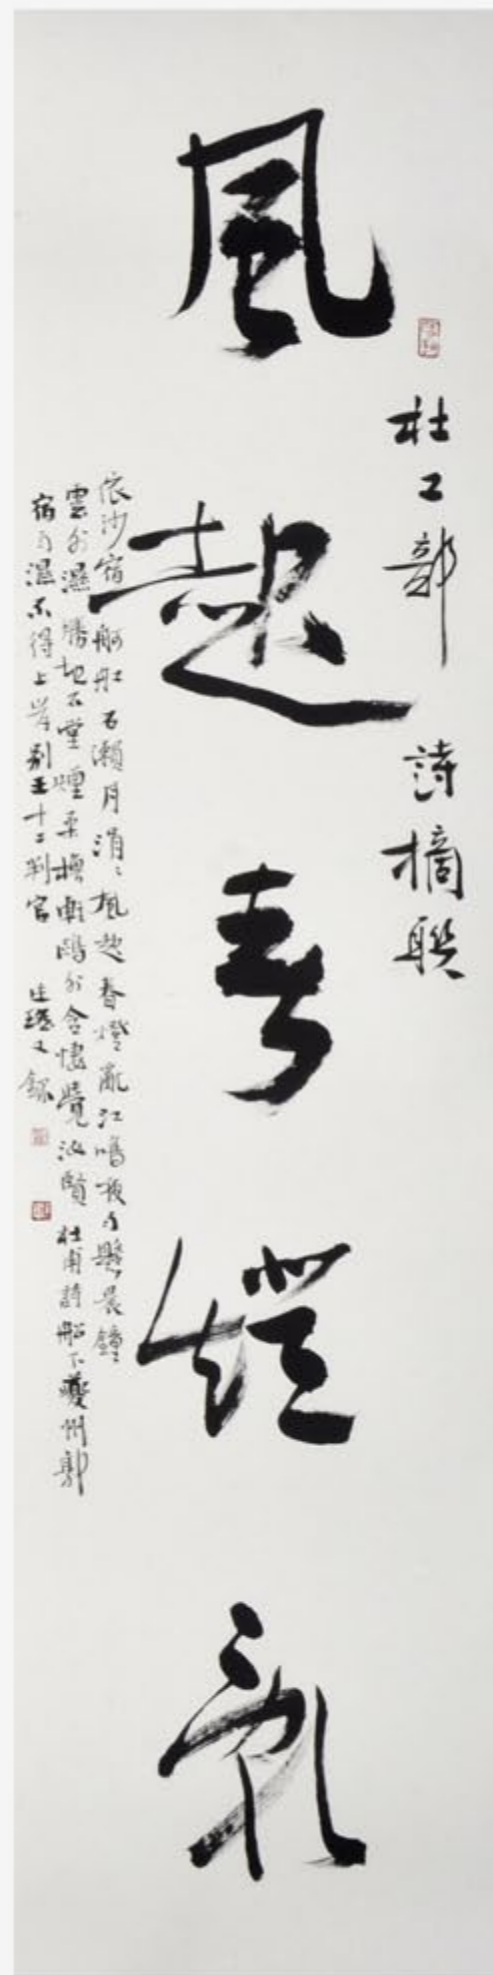 杜工部 詩摘聯
風起春燈亂
依沙宿舸船石瀨月涓〻風起春燈亂江鳴夜雨懸晨鐘
雲外濕勝地石堂煙柔櫓輕鷗外含悽覺汝賢 杜甫詩船下夔州郭
宿雨濕不得上岸別王十二判官 又錄